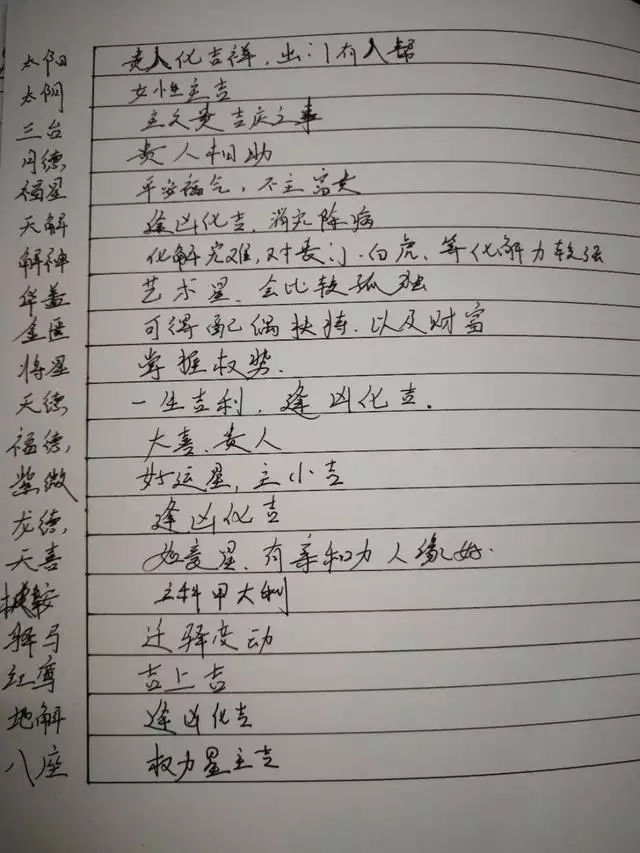 太阳 贵人化吉祥，出门有人帮
太阴 女性主吉
三台 主文贵吉庆之事
月德 贵人相助
福星 平安福气，不主富贵
天解 逢凶化吉，消灾除病
解神 化解灾难，对丧门.白虎、等化解力较强
华盖 艺术星、会比较孤独
金匮 可得配偶扶持.以及财富
将星 掌握权势.
天德 一生吉利，逢凶化吉.
福德, 大喜、贵人
紫微 好运星，主小吉
龙德, 逢凶化吉
天喜 恋爱星、有亲和力人缘好.
鞍 主科甲大利
驿马 迁驿变动
红鸾 吉上吉
地解 逢凶化吉
八座 权力星主吉